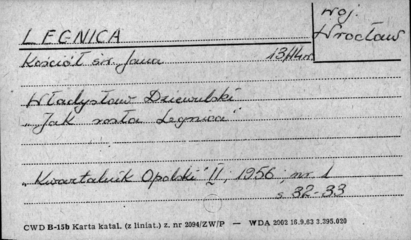 LEGNICA
woj.
Wrocław
Kościół św. Jana
Władysław Dziewulski
"Jak rosła Legnica"
"Kwartalnik Opolski" II, 1956 nr. 1
s. 32-33
CWD B-15b Karta katal. (z liniat.) z. nr 2094/ZW/P — WDA 2002 16.9.63 3.295.020